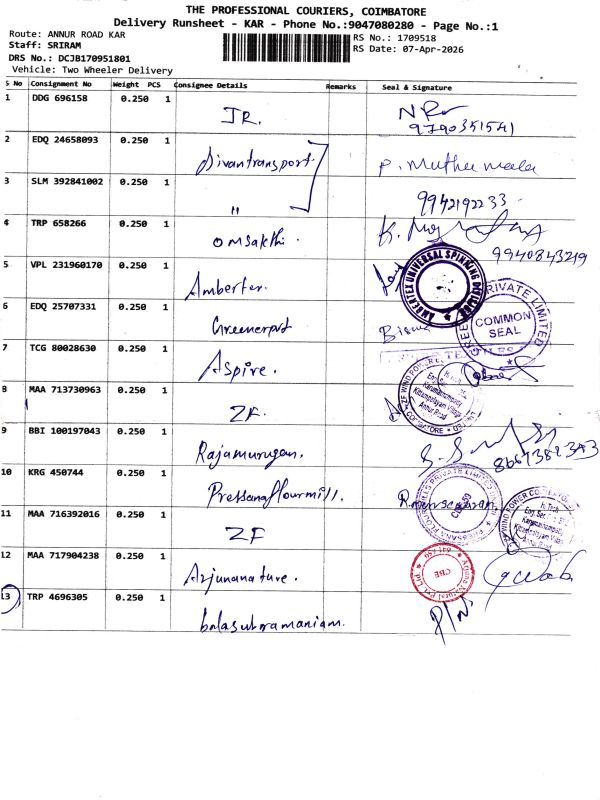 THE PROFESSIONAL COURIERS, COIMBATORE
Delivery Runsheet - KAR - Phone No.:9047080280 - Page No.:1
Route: ANNUR ROAD KAR
RS No.: 1709518
Staff: SRIRAM
RS Date: 07-Apr-2026
DRS No.: DCJB170951801
Vehicle: Two Wheeler Delivery
S No Consignment No Weight PCS Consignee Details Remarks Seal & Signature
1 DDG 696158 0.250 1 JR.
9790351541
2 EDQ 24658093 0.250 1 Divantransport P. Muthu
3 SLM 392841002 0.250 1 " 9942192233
4 TRP 658266 0.250 1 omsakthi. K.
9940843219
5 VPL 231960170 0.250 1 Ambertex.
AMBERTEX UNIVERSAL SPINNING
6 EDQ 25707331 0.250 1 Greenerpot
PRIVATE LIMITED
COMMON
SEAL
7 TCG 80028630 0.250 1 Aspire.
8 MAA 713730963 0.250 1 ZF.
ZF WIND POWER
Kittampalayam Village
Annur Road
COIMBATORE
9 BBI 100197043 0.250 1 Rajamurugan.
8667382343
10 KRG 450744 0.250 1 Pressanaflourmill.
11 MAA 716392016 0.250 1 ZF
ZF WIND POWER
12 MAA 717904238 0.250 1 Arjunanature.
CBE
13 TRP 4696305 0.250 1 balasubramaniam.